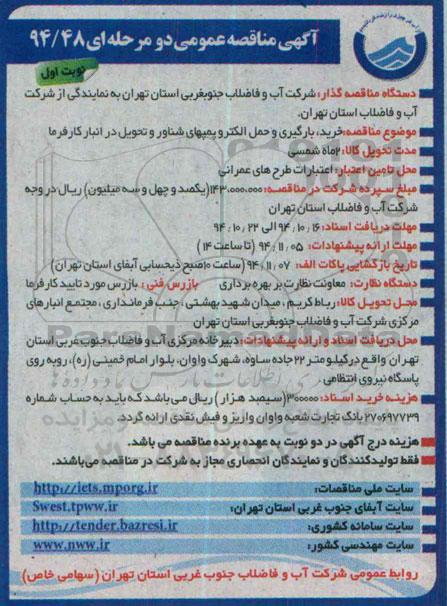 آگهی مناقصه عمومی دو مرحله ای ۹۴/۴۸
نوبت اول
دستگاه مناقصه گذار: شرکت آب و فاضلاب جنوبغربی استان تهران به نمایندگی از شرکت
آب و فاضلاب استان تهران.
موضوع مناقصه: خرید، بارگیری و حمل الکترو پمپهای شناور و تحویل در انبار کارفرما
مدت تحویل کالا: ۲ماه شمسی
محل تامین اعتبار: اعتبارات طرح های عمرانی
مبلغ سپرده شرکت در مناقصه: ۱۴۳.۰۰۰.۰۰۰(یکصد و چهل و سه میلیون) ریال در وجه
شرکت آب و فاضلاب استان تهران
مهلت دریافت اسناد: ۹۴.۱۰.۱۶ الی ۹۴.۱۰.۲۲
مهلت ارائه پیشنهادات: ۹۴.۱۱.۰۵ (تا ساعت ۱۴)
تاریخ بازگشایی پاکات الف: ۹۴.۱۱.۰۷ (ساعت ۱۰صبح ذیحسابی آبفای استان تهران)
دستگاه نظارت: معاونت نظارت بر بهره برداری بازرس فنی: بازرس مورد تایید کارفرما
محل تحویل کالا: رباط کریم، میدان شهید بهشتی، جنب فرمانداری، مجتمع انبارهای
مرکزی شرکت آب و فاضلاب جنوبغربی استان تهران
محل دریافت اسناد و ارائه پیشنهادات: دبیرخانه مرکزی آب و فاضلاب جنوب غربی استان
تهران واقع در کیلومتر ۲۲ جاده ساوه، شهرک واوان، بلوار امام خمینی (ره)، روبه روی
پاسگاه نیروی انتظامی
هزینه خرید اسناد: ۳۰۰۰۰۰(سیصد هزار) ریال می باشد که باید به حساب شماره
۲۷۰۶۹۷۷۳۹ بانک تجارت شعبه واوان واریز و فیش نقدی ارائه گردد.
هزینه درج آگهی در دو نوبت به عهده برنده مناقصه می باشد.
فقط تولیدکنندگان و نمایندگان انحصاری مجاز به شرکت در مناقصه می‌باشند.
سایت ملی مناقصات: http://iets.mporg.ir
سایت آبفای جنوب غربی استان تهران: Swest.tpww.ir
سایت سامانه کشوری: http://tender.bazresi.ir
سایت مهندسی کشور: www.nww.ir
روابط عمومی شرکت آب و فاضلاب جنوب غربی استان تهران (سهامی خاص)